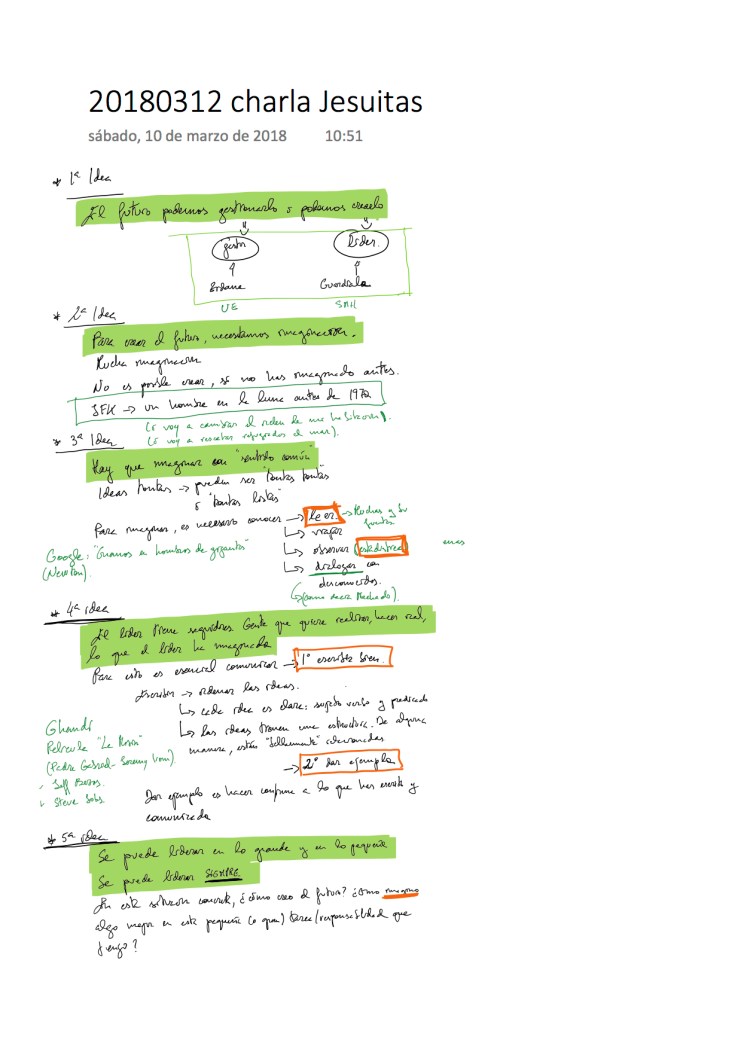 20180312 charla Jesuitas
sábado, 10 de marzo de 2018 10:51
* 1ª Idea
El futuro podemos gestionarlo o podemos crearlo
gestor líder
Zidane Guardiola
UE
* 2ª Idea
Para crear el futuro, necesitamos imaginación.
Mucha imaginación
No es posible crear, si no has imaginado antes.
JFK → un hombre en la luna antes de 1970
(o voy a cambiar el orden de mi habitación).
(o voy a rescatar refugiados al mar).
* 3ª Idea
Hay que imaginar con "sentido común"
Ideas tontas → pueden ser "tontas tontas"
o "tontas listas"
Para imaginar, es necesario conocer → leer → Muchas y tu
↳ viajar
Google: "Vamos a hombros de gigantes" ↳ observar
(Newton). ↳ dialogar con
desconocidos.
↳ (como decía Machado).
* 4ª idea
El líder tiene seguidores. Gente que quiere realizar, hacer real,
lo que el líder ha imaginado
Para esto es esencial comunicar → 1º escribir bien.
Escribir → ordenar las ideas.
↳ cada idea es clara: sujeto verbo y predicado
Ghandi ↳ las ideas tienen una estructura. De alguna
Película "La Misión" manera, están "bellamente" relacionadas
(Padre Gabriel - Jeremy Irons).
→ 2º dar ejemplo
Jeff Bezos.
Steve Jobs Dar ejemplo es hacer conforme a lo que has escrito y
comunicado
* 5ª idea
Se puede liderar en lo grande y en lo pequeño
Se puede liderar SIEMPRE
En esta situación concreta, ¿cómo creo el futuro? ¿cómo imagino
algo mejor en esta pequeña (o gran) tarea/responsabilidad que
tengo?